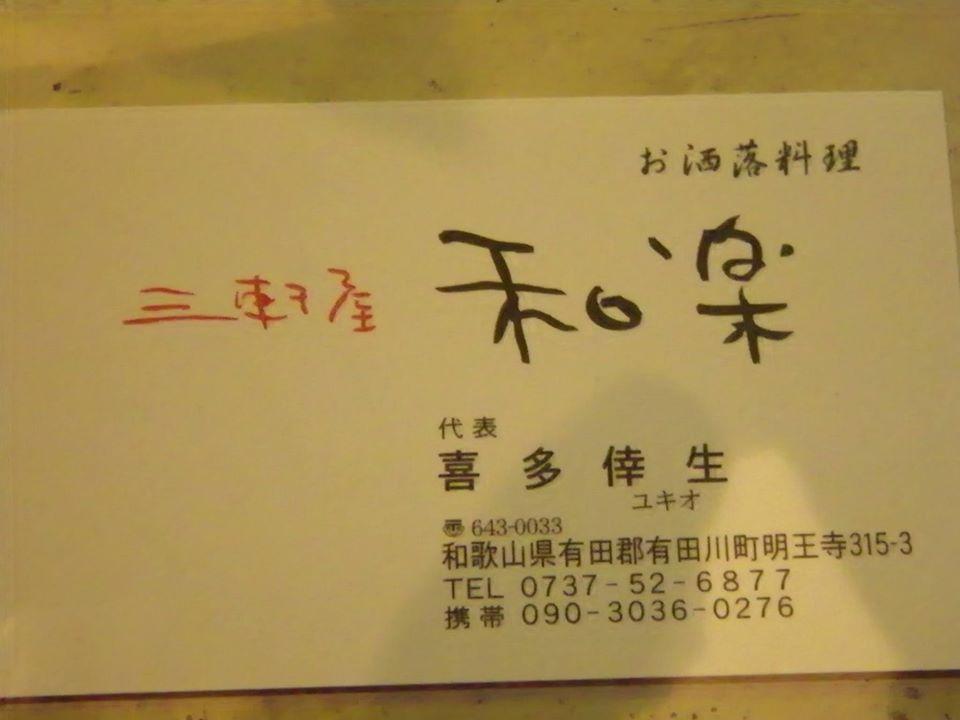 お洒落料理
三軒屋 和楽
代表
喜多倖生
ユキオ
〠 643-0033
和歌山県有田郡有田川町明王寺315-3
TEL 0737-52-6877
携帯 090-3036-0276